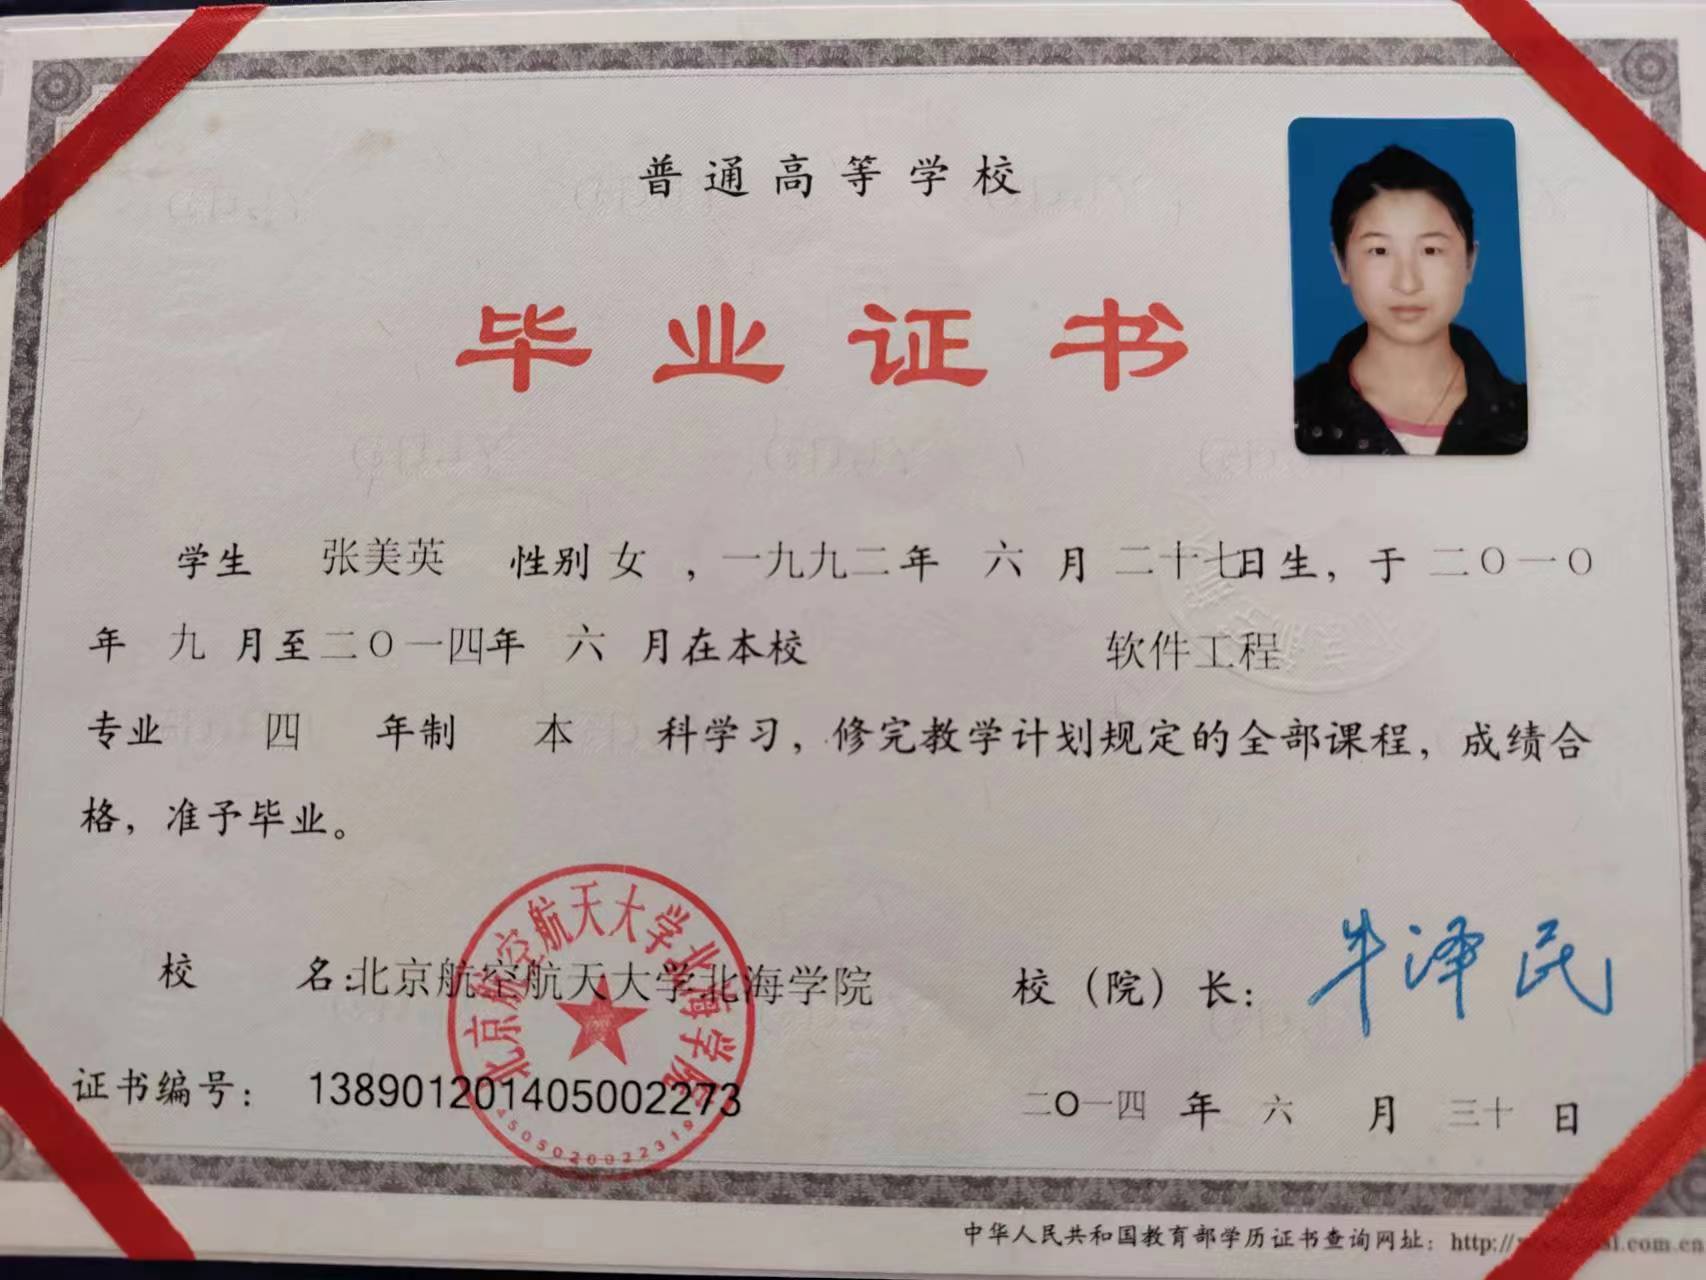 普通高等学校
毕业证书
学生 张美英 性别 女 ，一九九二年 六 月 二十七日生，于 二〇一〇
年 九 月至二〇一四年 六 月在本校 软件工程
专业 四 年制 本 科学习，修完教学计划规定的全部课程，成绩合
格，准予毕业。
北京航空航天大学北海学院
校 名:北京航空航天大学北海学院 校（院）长： 牛泽民
证书编号： 138901201405002273
二〇一四 年 六 月 三十 日
4505020022319
中华人民共和国教育部学历证书查询网址：http://